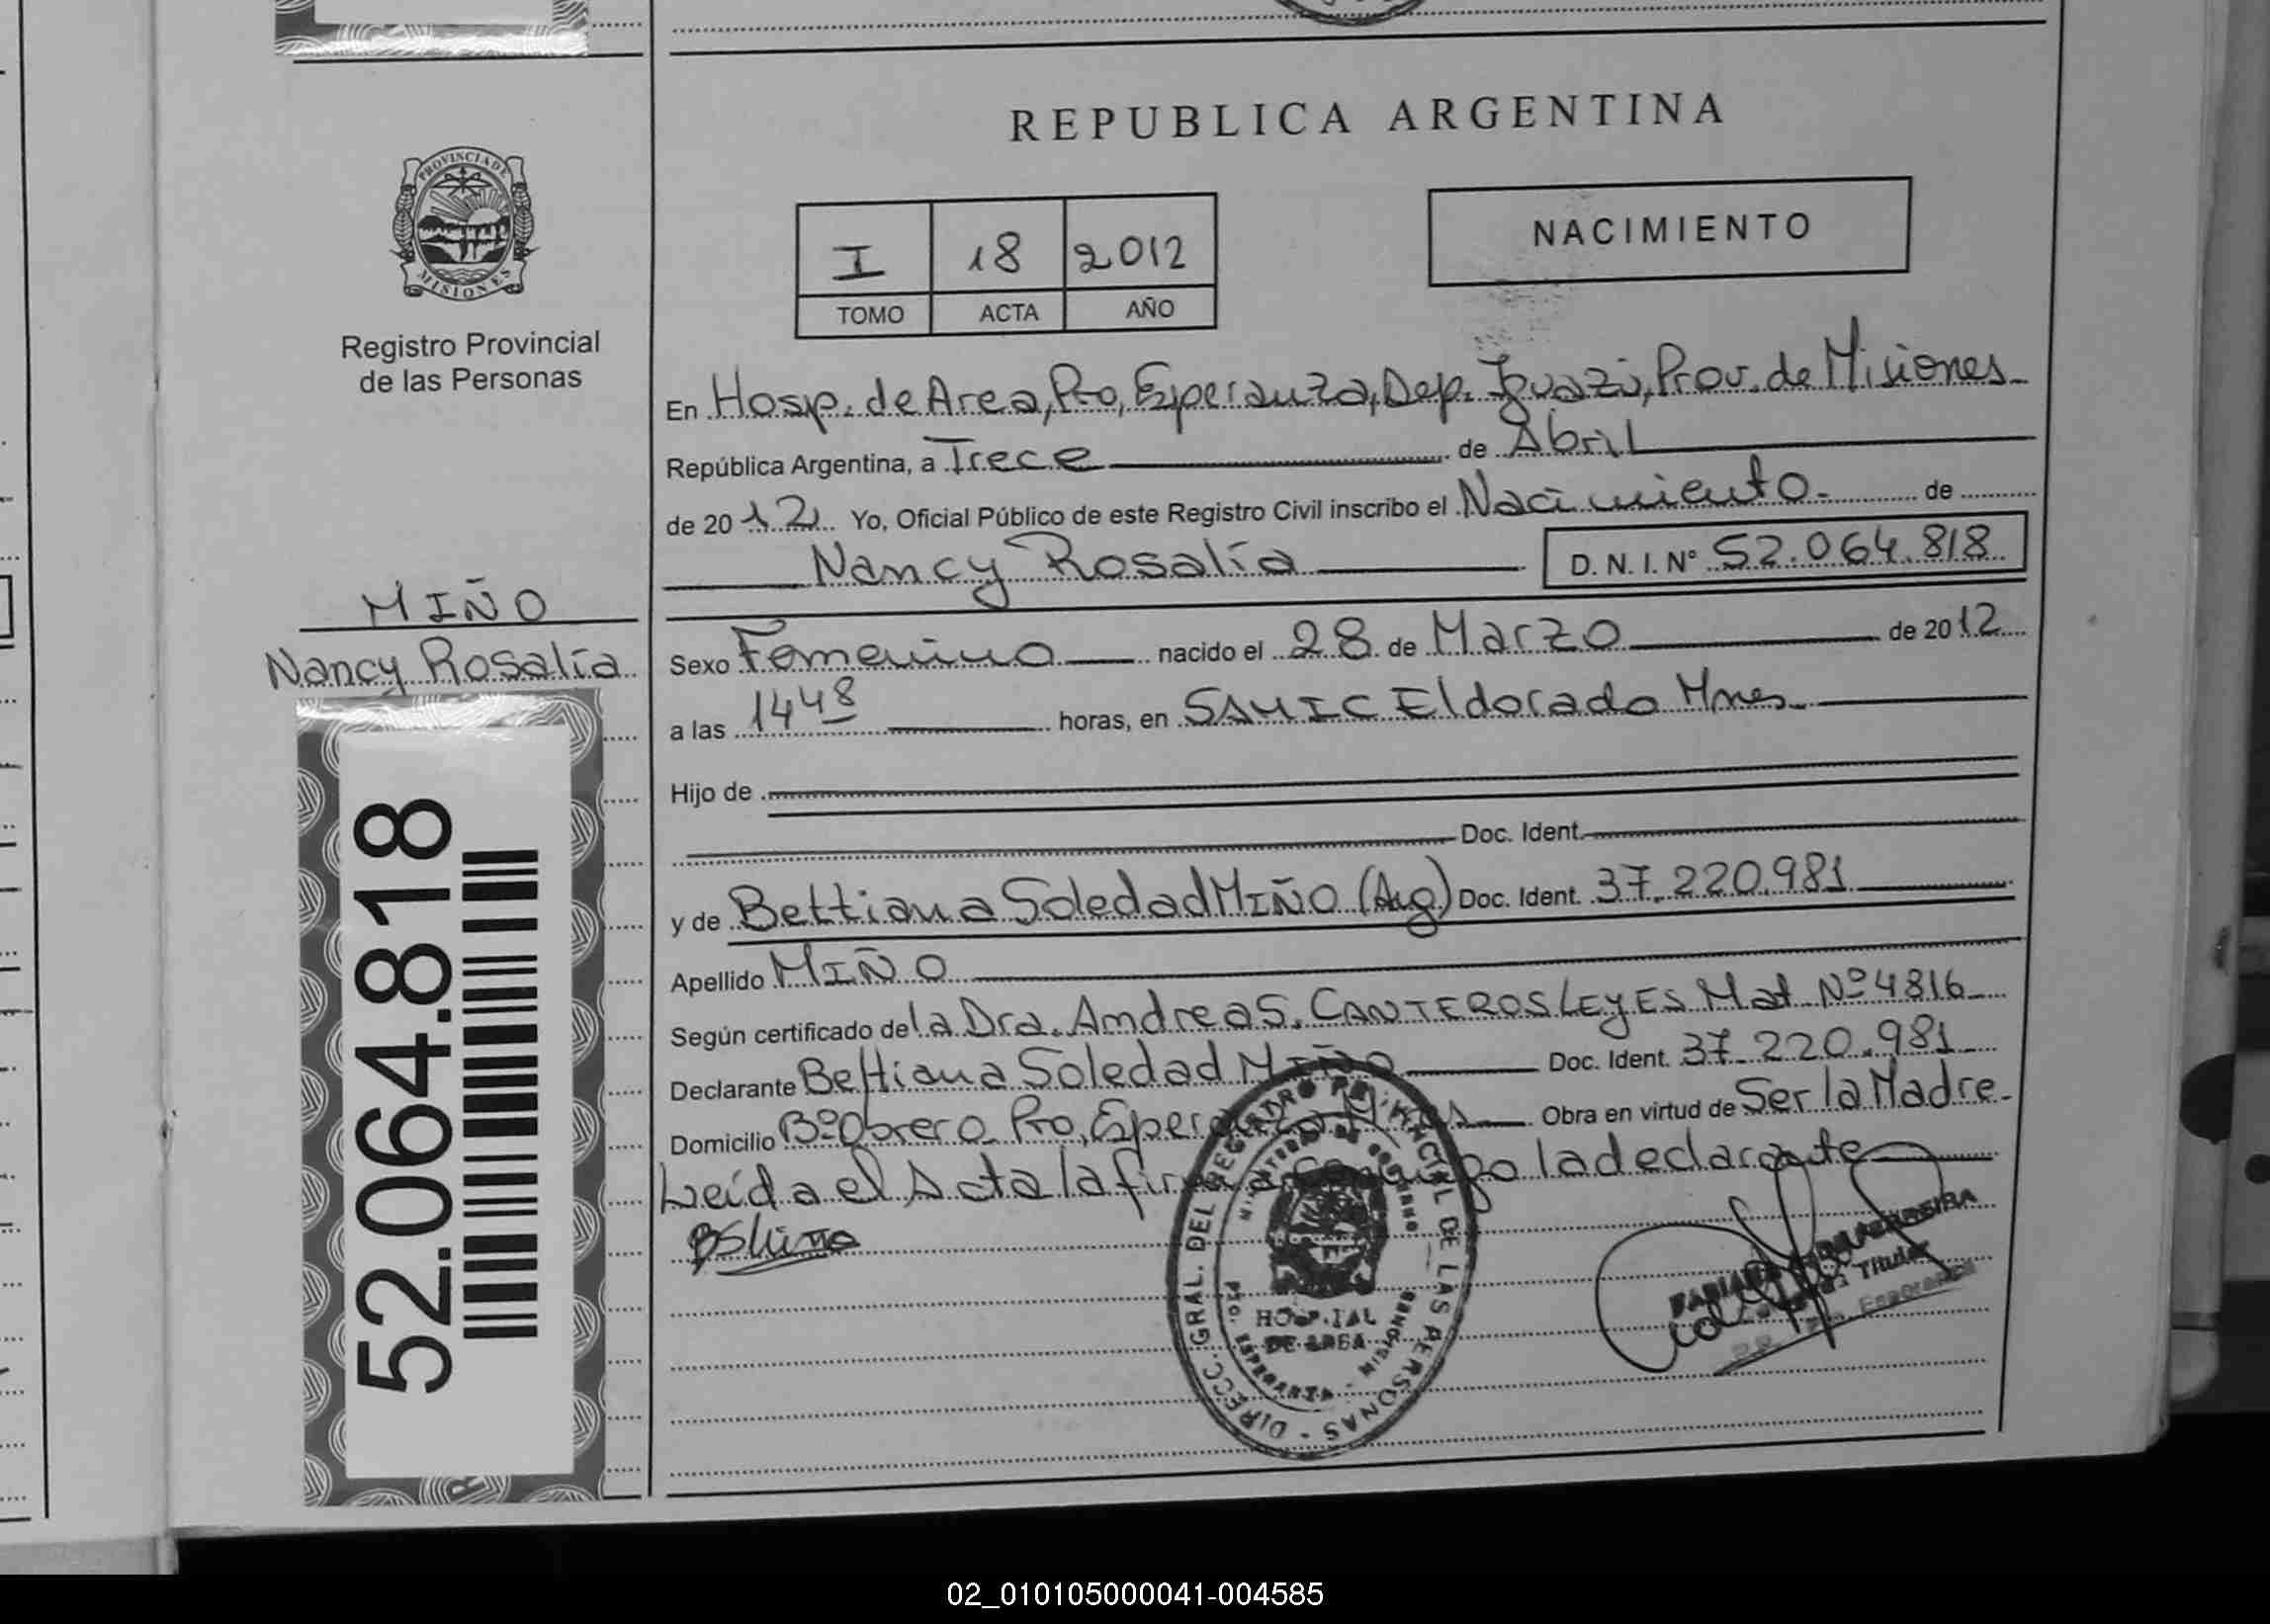 REPUBLICA ARGENTINA
PROVINCIA DE
MISIONES
Registro Provincial
de las Personas
I 18 2012
TOMO ACTA AÑO
NACIMIENTO
En Hosp. de Area, Pto, Esperanza, Dep. Iguazú, Prov. de Misiones
República Argentina, a Trece de Abril
de 2012 Yo, Oficial Público de este Registro Civil inscribo el Nacimiento de
Nancy Rosalía D. N. I. N° 52.064.818
MIÑO
Nancy Rosalía
52.064.818
Sexo Femenino nacido el 28 de Marzo de 2012
a las 14 48 horas, en SAMIC Eldorado Mnes
Hijo de
Doc. Ident.
y de Bettiana Soledad MIÑO (Arg) Doc. Ident. 37.220.981
Apellido MIÑO
Según certificado de la Dra. Andrea S. CANTEROS LEYES Mat Nº 4816
Declarante Bettiana Soledad MIÑO Doc. Ident. 37.220.981
Domicilio Bº Obrero Pto, Esperanza Mnes Obra en virtud de Ser la Madre
Leída el Acta la firma conmigo la declarante
BSMiño
DIRECC. GRAL. DEL REGISTRO PROVINCIAL DE LAS PERSONAS
MINISTERIO DE GOBIERNO
HOSPITAL
DE AREA
PTO. ESPERANZA - MISIONES
Titular
Esperanza
02_010105000041-004585